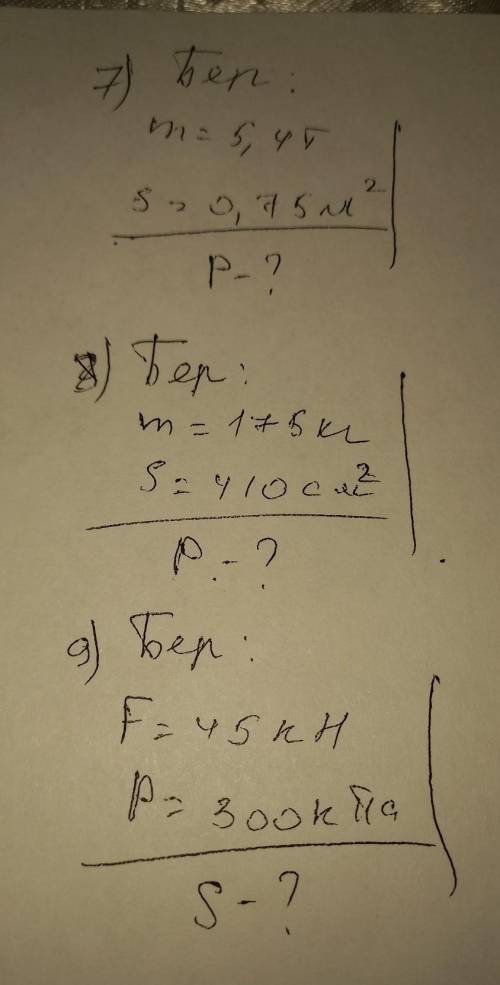 7) Бер:
m = 5,4т
S = 0,75 м²
P - ?
8) Бер:
m = 175 кг
S = 410 см²
P - ?
9) Бер:
F = 45 кН
P = 300 кПа
S - ?